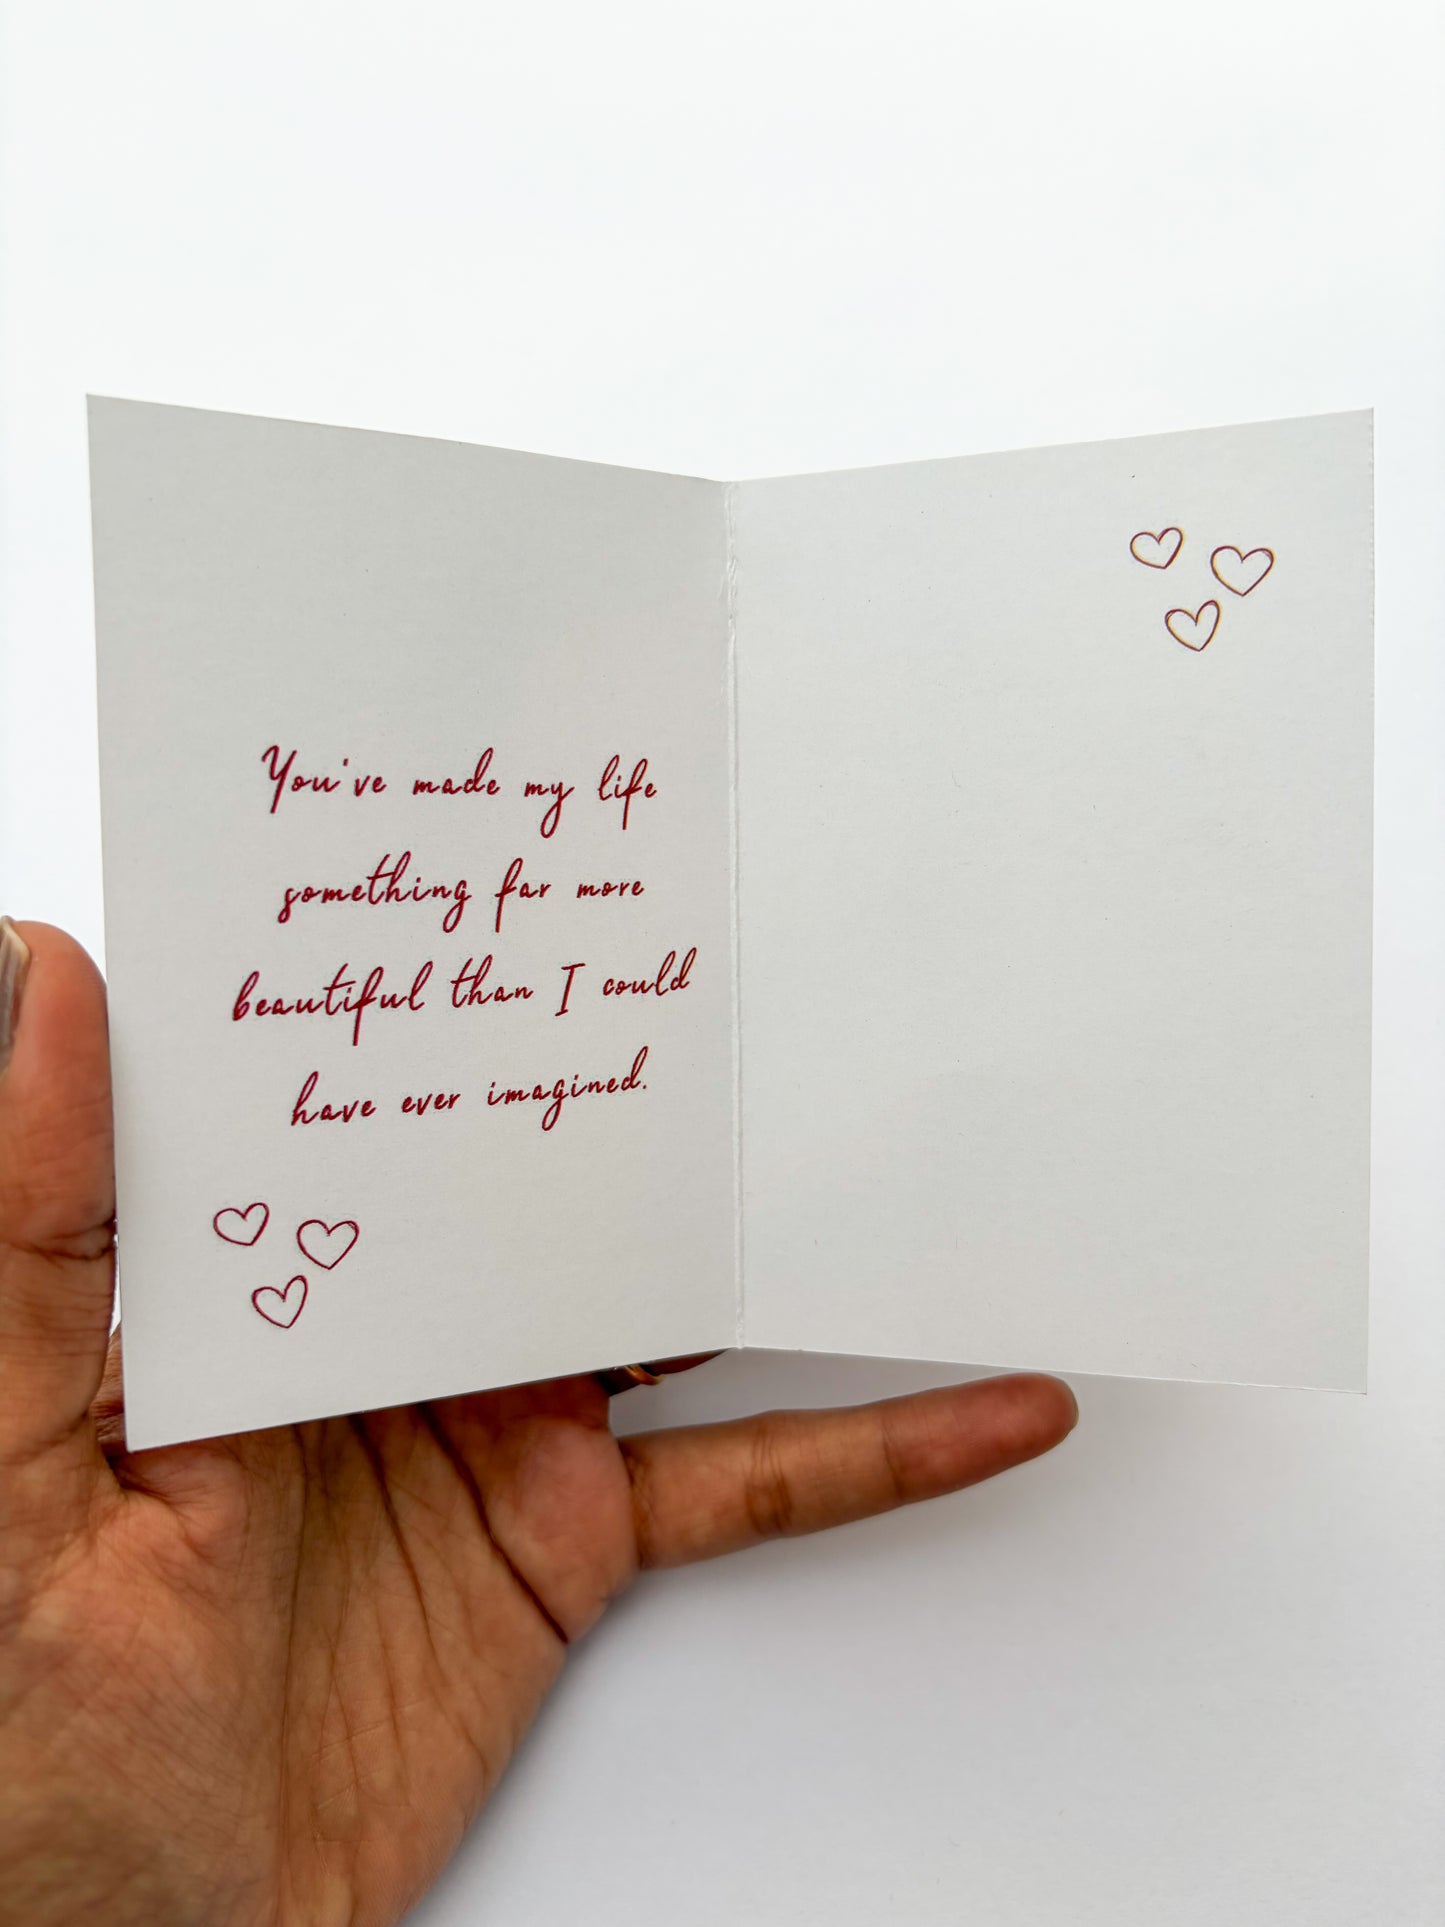 You've made my life
something far more
beautiful than I could
have ever imagined.